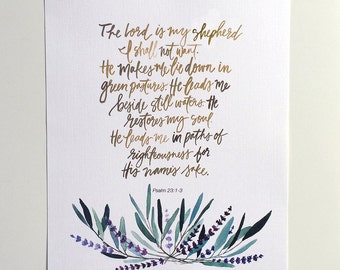 The Lord is my shepherd
I shall not want.
He makes me lie down in
green pastures. He leads me
beside still waters. He
restores my soul
He leads me in paths of
righteousness for
His name's sake.
Psalm 23:1-3